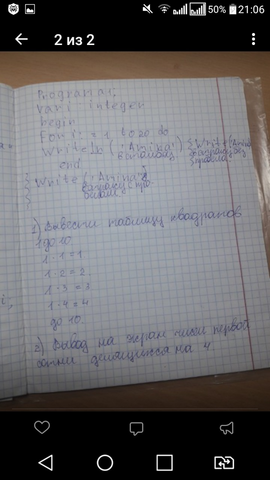 50% 21:06
2 из 2
Program a1;
var i: integer
begin
for i:=1 to 20 do
Writeln ('Amina')
end
Write ('Amina')
1) Вывести таблицу квадратов
1 до 10
1·1=1
1·2=2
1·3=3
1·4=4
до 10.
2) Вывод на экран числа первой
сотни делящихся на 4.